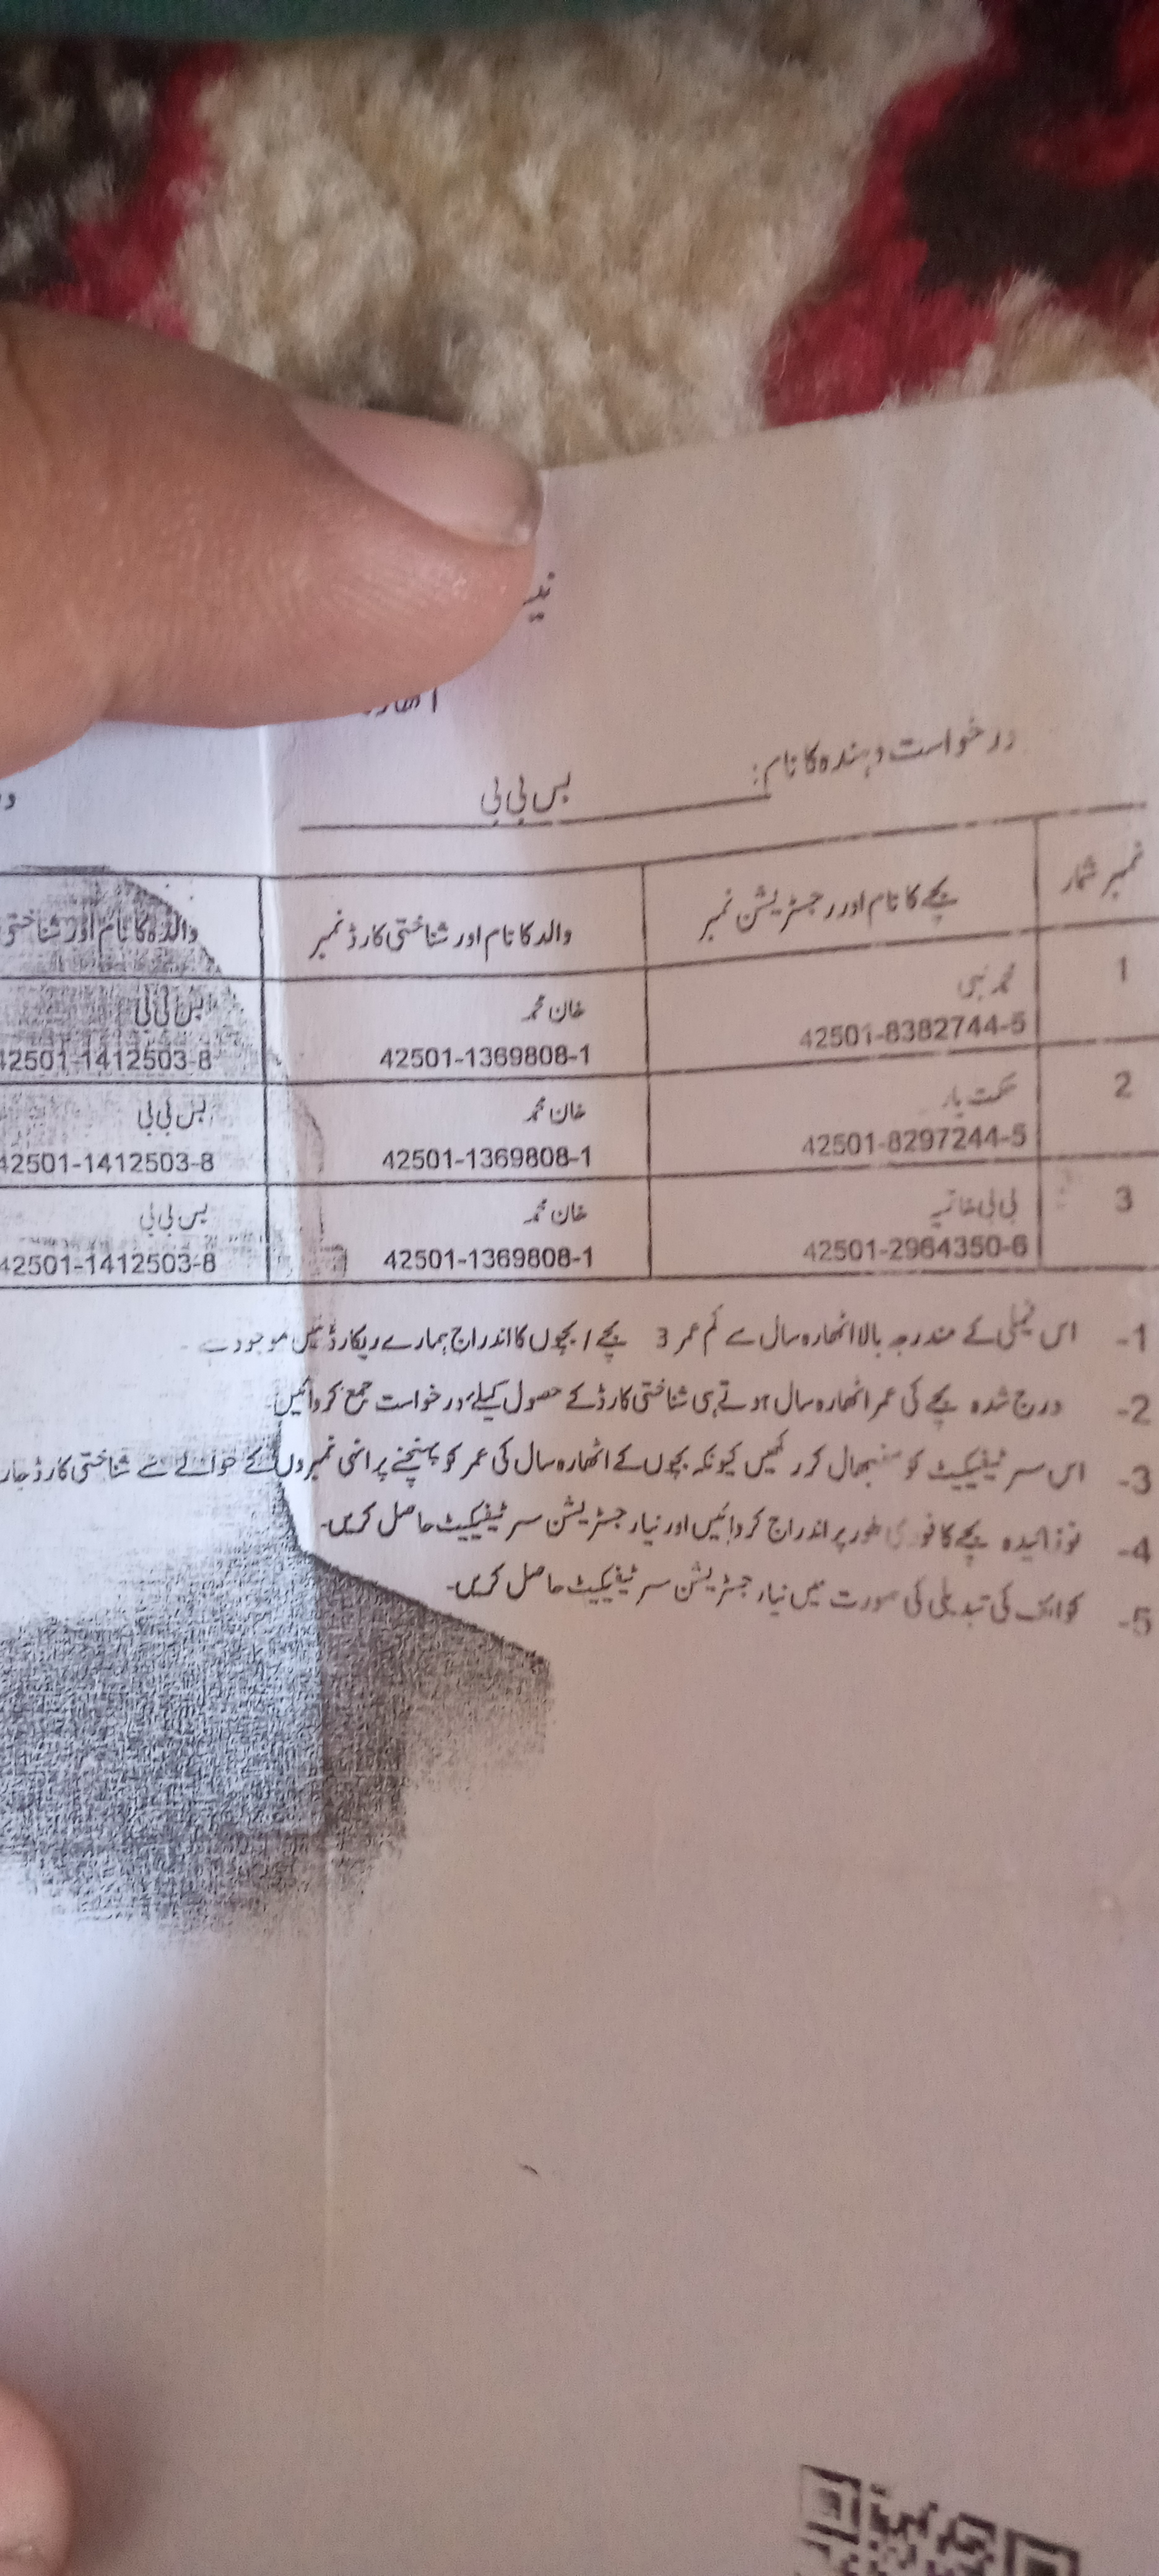 درخواست دہندہ کا نام: بس بی بی
نمبر شمار بچے کا نام اور رجسٹریشن نمبر والد کا نام اور شناختی کارڈ نمبر والدہ کا نام اور شناختی
1 محمد نبی خان محمد بس بی بی
42501-8382744-5 42501-1369808-1 42501-1412503-8
2 حکمت یار خان محمد بس بی بی
42501-8297244-5 42501-1369808-1 42501-1412503-8
3 بی بی خان محمد بس بی بی
42501-2964350-6 42501-1369808-1 42501-1412503-8
1- اس فیملی کے مندرجہ بالا اٹھارہ سال سے کم عمر 3 بچے / بچوں کا اندراج ہمارے ریکارڈ میں موجود ہے -
2- درج شدہ بچے کی عمر اٹھارہ سال ہوتے ہی شناختی کارڈ کے حصول کیلئے درخواست جمع کروائیں-
3- اس سرٹیفیکیٹ کو سنبھال کر رکھیں کیونکہ بچوں کے اٹھارہ سال کی عمر کو پہنچنے پر انہی نمبروں کے حوالے سے شناختی کارڈ جار
4- نوزائیدہ بچے کا فوری طور پر اندراج کروائیں اور نیا رجسٹریشن سرٹیفیکیٹ حاصل کریں-
5- کوائف کی تبدیلی کی صورت میں نیا رجسٹریشن سرٹیفیکیٹ حاصل کریں-